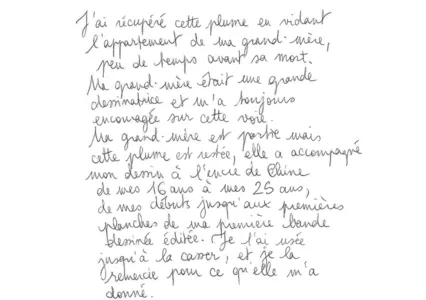 J'ai récupéré cette plume en vidant
l'appartement de ma grand-mère,
peu de temps avant sa mort.
Ma grand-mère était une grande
dessinatrice et m'a toujours
encouragée sur cette voie.
Ma grand-mère est partie mais
cette plume est restée, elle a accompagné
mon dessin à l'encre de Chine
de mes 16 ans à mes 25 ans,
de mes débuts jusqu'aux premières
planches de ma première bande
dessinée éditée. Je l'ai usée
jusqu'à la casser, et je la
remercie pour ce qu'elle m'a
donné.